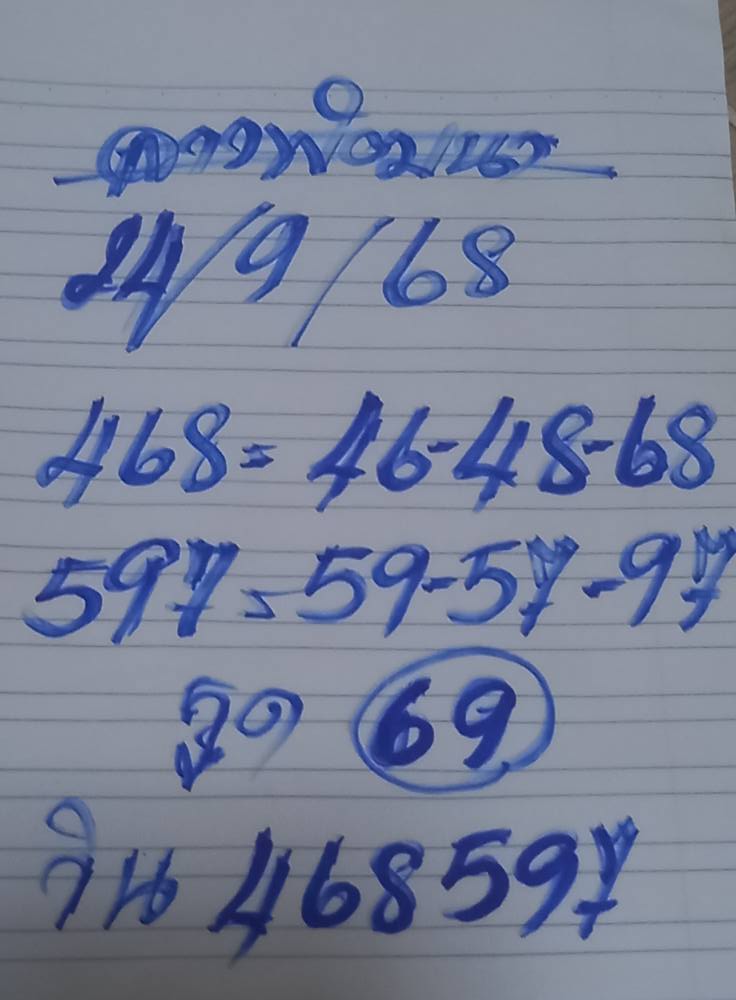 ลาวพัฒนา
24/9/68
468=46-48-68
597=59-57-97
รูด 69
วิน 468597